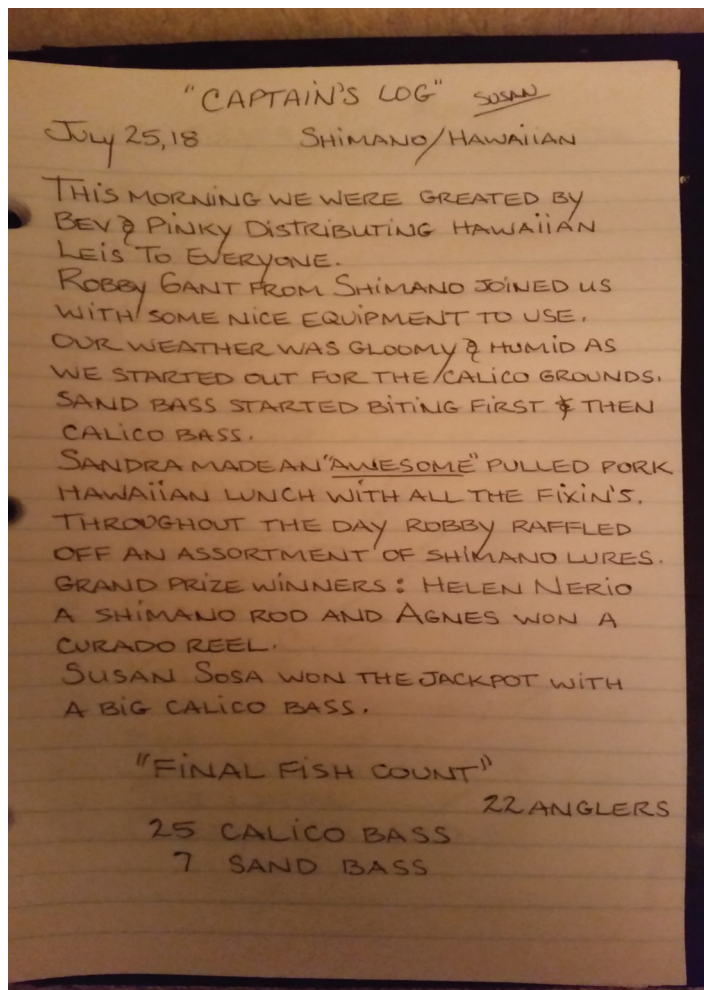 "CAPTAIN'S LOG" SUSAN
JULY 25,18 SHIMANO/HAWAIIAN
THIS MORNING WE WERE GREATED BY
BEV & PINKY DISTRIBUTING HAWAIIAN
LEIS TO EVERYONE.
ROBBY GANT FROM SHIMANO JOINED US
WITH SOME NICE EQUIPMENT TO USE.
OUR WEATHER WAS GLOOMY & HUMID AS
WE STARTED OUT FOR THE CALICO GROUNDS.
SAND BASS STARTED BITING FIRST & THEN
CALICO BASS.
SANDRA MADE AN "AWESOME" PULLED PORK
HAWAIIAN LUNCH WITH ALL THE FIXIN'S.
THROUGHOUT THE DAY ROBBY RAFFLED
OFF AN ASSORTMENT OF SHIMANO LURES.
GRAND PRIZE WINNERS: HELEN NERIO
A SHIMANO ROD AND AGNES WON A
CURADO REEL.
SUSAN SOSA WON THE JACKPOT WITH
A BIG CALICO BASS.
"FINAL FISH COUNT"
22 ANGLERS
25 CALICO BASS
7 SAND BASS